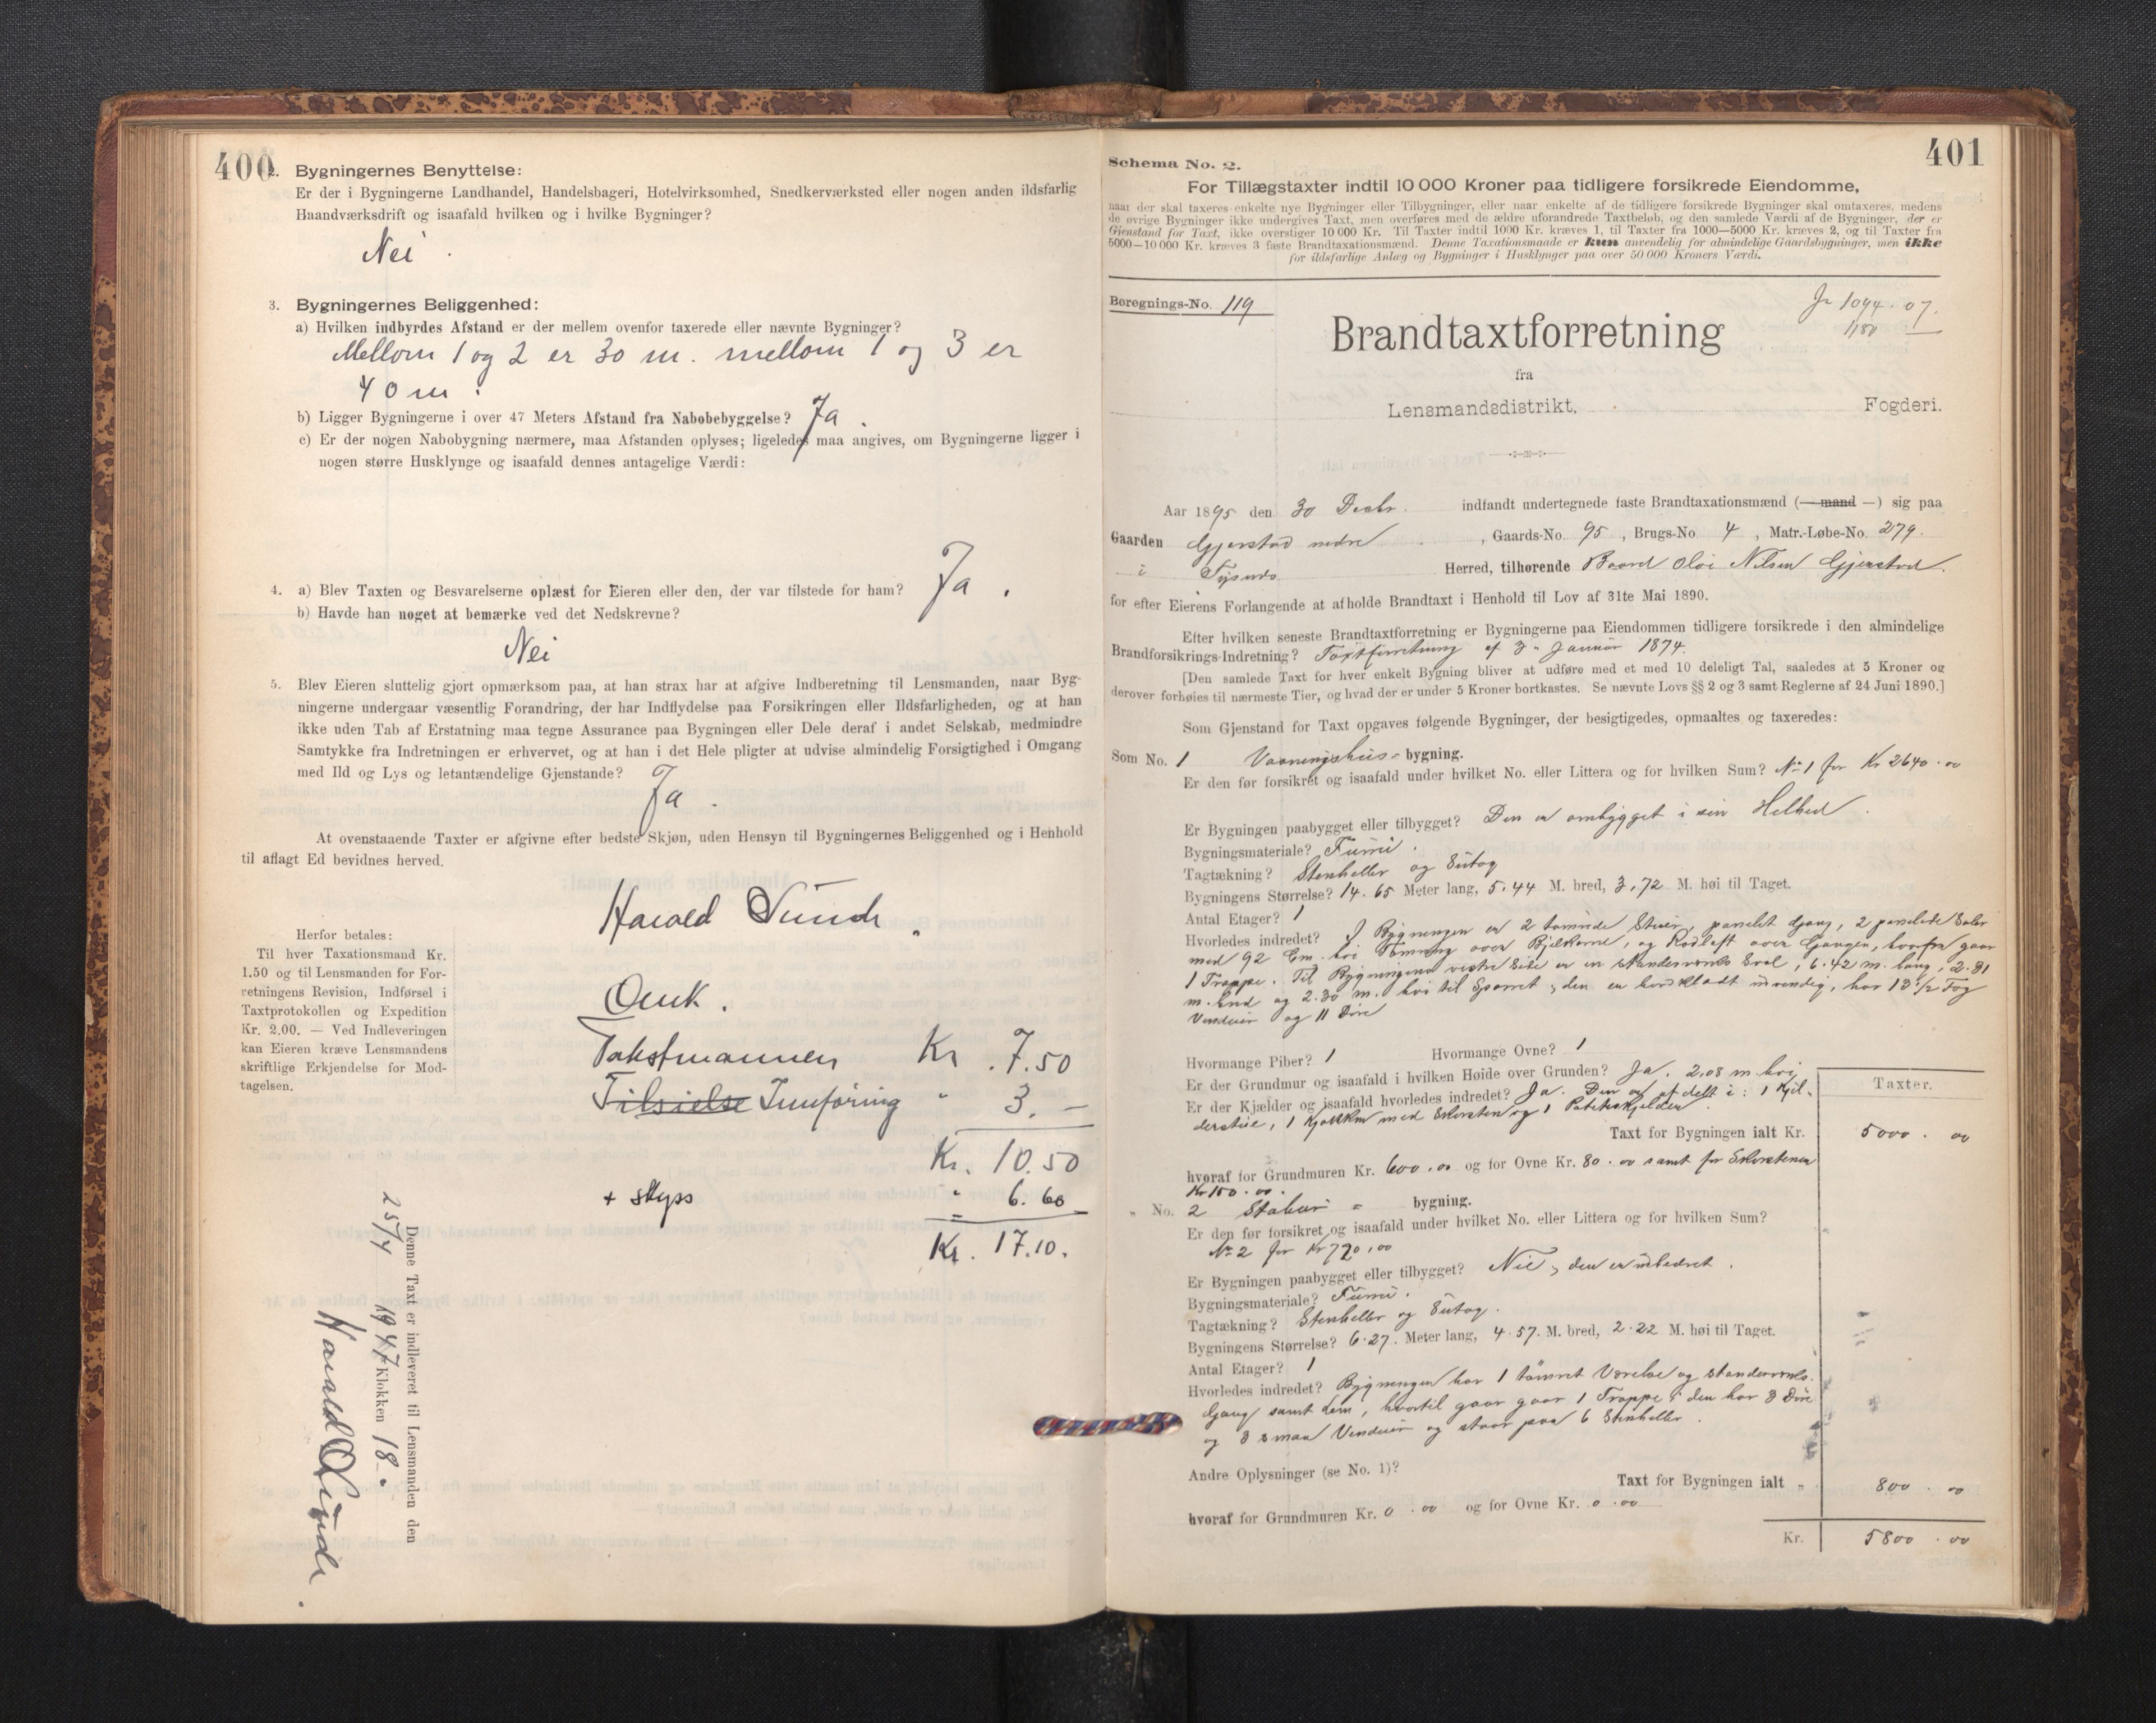 400
2. Bygningernes Benyttelse:
Er der i Bygningerne Landhandel, Handelsbageri, Hotelvirksomhed, Snedkerværksted eller nogen anden ildsfarlig
Haandværksdrift og isaafald hvilken og i hvilke Bygninger?
Nei.
3. Bygningernes Beliggenhed:
a) Hvilken indbyrdes Afstand er der mellem ovenfor taxerede eller nævnte Bygninger?
Mellom 1 og 2 er 30 m. mellom 1 og 3 er
40 m.
b) Ligger Bygningerne i over 47 Meters Afstand fra Nabobebyggelse? Ja.
c) Er der nogen Nabobygning nærmere, maa Afstanden oplyses; ligeledes maa angives, om Bygningerne ligger i
nogen større Husklynge og isaafald dennes antagelige Værdi:
4. a) Blev Taxten og Besvarelserne oplæst for Eieren eller den, der var tilstede for ham? Ja.
b) Havde han noget at bemærke ved det Nedskrevne?
Nei
5. Blev Eieren sluttelig gjort opmærksom paa, at han strax har at afgive Indberetning til Lensmanden, naar Byg-
ningerne undergaar væsentlig Forandring, der har Indflydelse paa Forsikringen eller Ildsfarligheden, og at han
ikke uden Tab af Erstatning maa tegne Assurance paa Bygningen eller Dele deraf i andet Selskab, medmindre
Samtykke fra Indretningen er erhvervet, og at han i det Hele pligter at udvise almindelig Forsigtighed i Omgang
med Ild og Lys og letantændelige Gjenstande?
Ja.
At ovenstaaende Taxter er afgivne efter bedste Skjøn, uden Hensyn til Bygningernes Beliggenhed og i Henhold
til aflagt Ed bevidnes herved.
Harald Lunde.
Herfor betales:
Til hver Taxationsmand Kr.
1.50 og til Lensmanden for For-
retningens Revision, Indførsel i
Taxtprotokollen og Expedition
Kr. 2.00. — Ved Indleveringen
kan Eieren kræve Lensmandens
skriftlige Erkjendelse for Mod-
tagelsen.
Takstmannen Kr. 7.50
Innføring " 3.—
Kr. 10.50
+ skyss " 6.60
Kr. 17.10.
Denne Taxt er indleveret til Lensmanden den
25/4 1947 Klokken 18.
Harald Lunde.
401
Schema No. 2.
For Tillægstaxter indtil 10 000 Kroner paa tidligere forsikrede Eiendomme,
naar der skal taxeres enkelte nye Bygninger eller Tilbygninger, eller naar enkelte af de tidligere forsikrede Bygninger skal omtaxeres, medens
de øvrige Bygninger ikke undergives Taxt, men overføres med de ældre uforandrede Taxtbeløb, og den samlede Værdi af de Bygninger, der er
Gjenstand for Taxt, ikke overstiger 10 000 Kr. Til Taxter indtil 1000 Kr. kræves 1, til Taxter fra 1000—5000 Kr. kræves 2, og til Taxter fra
5000—10 000 Kr. kræves 3 faste Brandtaxationsmænd. Denne Taxationsmaade er kun anvendelig for almindelige Gaardsbygninger, men ikke
for ildsfarlige Anlæg og Bygninger i Husklynger paa over 50 000 Kroners Værdi.
Beregnings-No. 119
Jr 1094. 07.
1180
Brandtaxtforretning
fra
Lensmandsdistrikt, Fogderi.
Aar 1895 den 30 Decbr. indfandt undertegnede faste Brandtaxationsmænd (— mand —) sig paa
Gaarden Gjerstad nedre, Gaards-No. 95, Brugs-No 4, Matr.-Løbe-No. 279.
i Tysnes Herred, tilhørende Baard Oloi Nilsen Gjerstad.
for efter Eierens Forlangende at afholde Brandtaxt i Henhold til Lov af 31te Mai 1890.
Efter hvilken seneste Brandtaxtforretning er Bygningerne paa Eiendommen tidligere forsikrede i den almindelige
Brandforsikrings-Indretning? Taxtforretning af 3. Januar 1874.
[Den samlede Taxt for hver enkelt Bygning bliver at udføre med et med 10 deleligt Tal, saaledes at 5 Kroner og
derover forhøies til nærmeste Tier, og hvad der er under 5 Kroner bortkastes. Se nævnte Lovs §§ 2 og 3 samt Reglerne af 24 Juni 1890.]
Som Gjenstand for Taxt opgaves følgende Bygninger, der besigtigedes, opmaaltes og taxeredes:
Som No. 1 Vaaningshus-bygning.
Er den før forsikret og isaafald under hvilket No. eller Littera og for hvilken Sum? No 1 for Kr 2640.00
Er Bygningen paabygget eller tilbygget? Den er ombygget i sin Helhed.
Bygningsmateriale? Furru.
Tagtækning? Stenheller og Sutag
Bygningens Størrelse? 14.65 Meter lang, 5.44 M. bred, 3.72 M. høi til Taget.
Antal Etager? 1
Hvorledes indredet? I Bygningen er 2 tømrede Stuer, panelet Gang, 2 panelede Saler
med 92 Cm. høi Tømring over Bjelkerne, og Rodloft over Gangen, hvorfra gaar
1 Trappe. Til Bygningens vestre Side er en standerverks Sval, 6.42 m. lang, 2.81
m. bred og 2.30 m. høi til Sparret, den er bordklædt udvendig, har 13 1/2 Fog
Vinduer og 11 Døre
Hvormange Piber? 1 Hvormange Ovne? 1
Er der Grundmur og isaafald i hvilken Høide over Grunden? Ja. 2.08 m. høi
Er der Kjælder og isaafald hvorledes indredet? Ja. Den er afdelt i: 1 Kjæl-
derstue, 1 Kjøkken med Skorsten og 1 Potetskjelder.
Taxter.
Taxt for Bygningen ialt Kr. 5000.00
hvoraf for Grundmuren Kr. 600.00 og for Ovne Kr. 80.00 samt for Skorstenen
Kr 150.00.
" No. 2 Stabur-bygning.
Er den før forsikret og isaafald under hvilket No. eller Littera og for hvilken Sum?
No 2 for Kr 720.00
Er Bygningen paabygget eller tilbygget? Nei, den er udbedret.
Bygningsmateriale? Furru.
Tagtækning? Stenheller og Sutag.
Bygningens Størrelse? 6.27. Meter lang, 4.57. M. bred, 2.22 M. høi til Taget.
Antal Etager? 1
Hvorledes indredet? Bygningen har 1 tømret Værelse og standerverks.
Gang samt Lem, hvortil gaar gaar 1 Trappe; den har 3 Døre
og 3 smaa Vinduer og staar paa 6 Stenheller.
Andre Oplysninger (se No. 1)?
Taxt for Bygningen ialt " 800.00
hvoraf for Grundmuren Kr. 0.00 og for Ovne Kr. 0.00
Kr. 5800.00